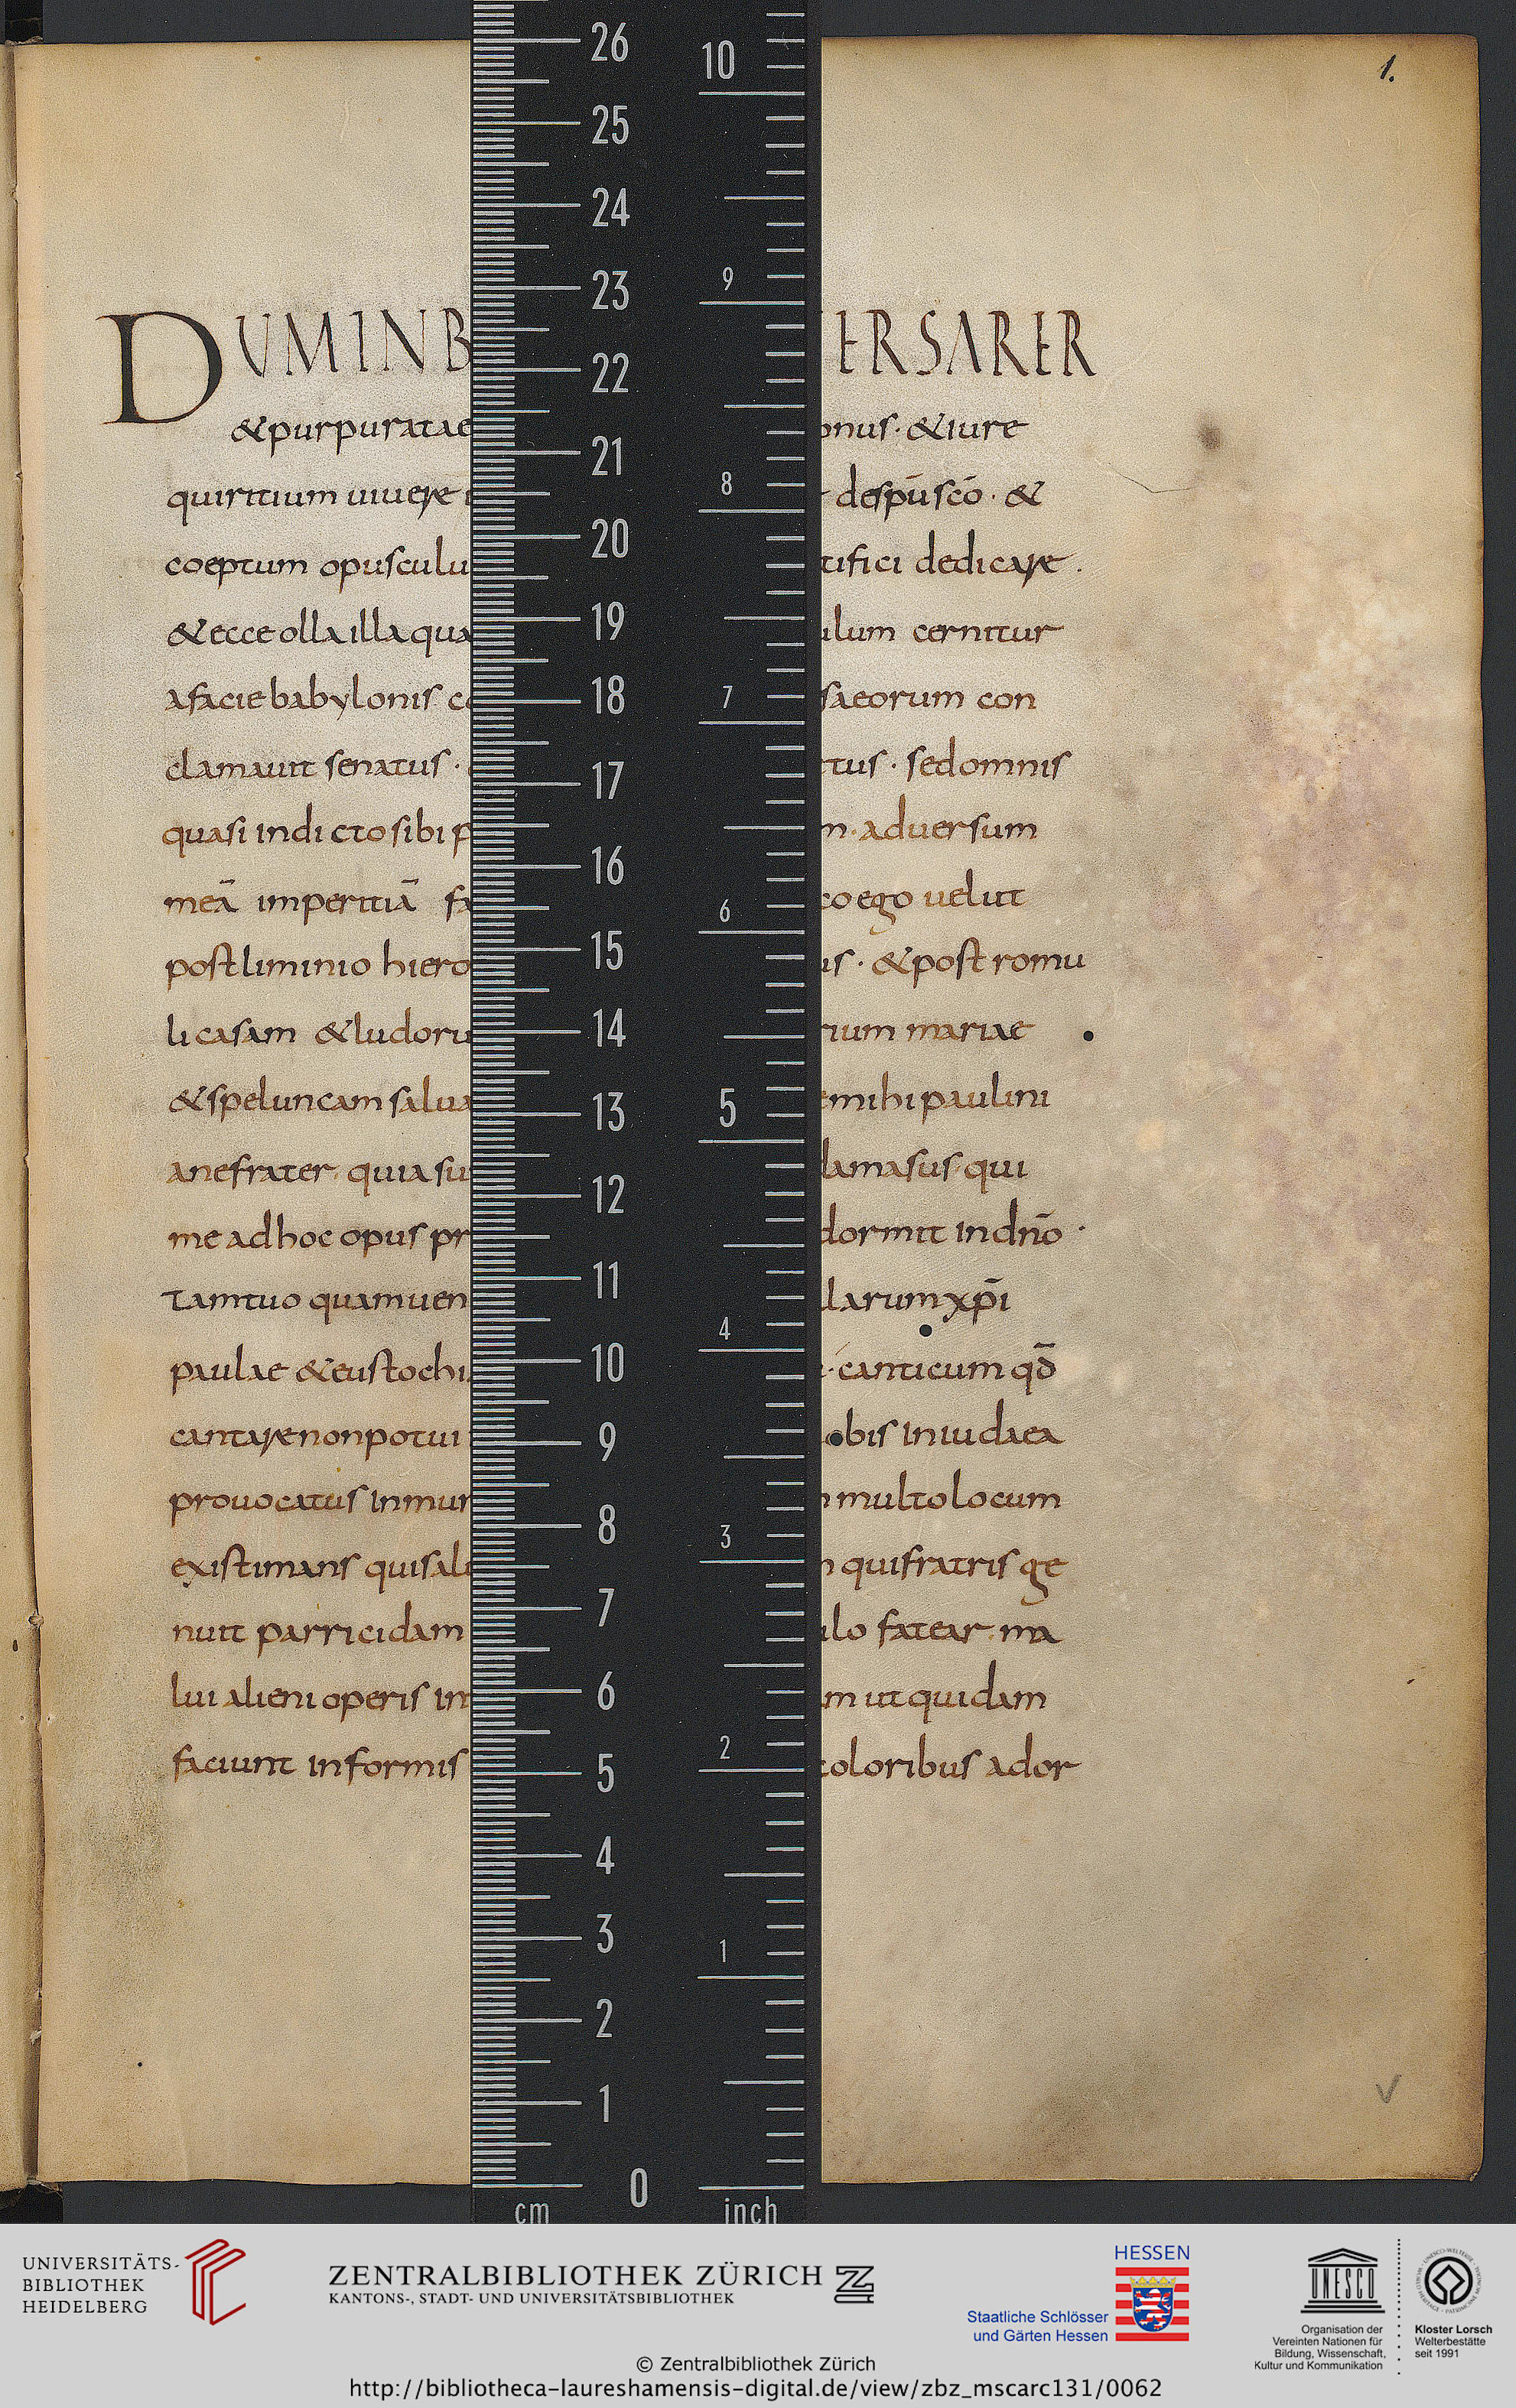 1.
DUMINB ERSARER
&purpuratae onus · &iure
quiritium uiuere despu sco · &
coeptum opusculu tifici dedicare .
&ecce olla illa qua ulum cernitur
afacie babylonis saeorum con
clamauit senatus · tus · sed omnis
quasi indicto sibi m · aduersum
meā imperitiā fa co ego uelut
postliminio hiero is · &post romu
li casam &ludoru rium mariae
&speluncam salua emihi paulini
ane frater · quia su damasus · qui
me ad hoc opus pr dormit indnō ·
Tam tuo quam uen larum xp̄i
paulae &eustochi · canticum qd̄
cantare non potui obis in iudaea
prouocatus in mur multo locum
existimans quisali qui fratris ge
nuit parricidam ilo fatear ma
lui alieni operis in m ut quidam
faciunt informis coloribus ador
26
25
24
23
22
21
20
19
18
17
16
15
14
13
12
11
10
9
8
7
6
5
4
3
2
1
0
cm
10
9
8
7
6
5
4
3
2
1
inch
UNIVERSITÄTS-
BIBLIOTHEK
HEIDELBERG
ZENTRALBIBLIOTHEK ZÜRICH
KANTONS-, STADT- UND UNIVERSITÄTSBIBLIOTHEK
HESSEN
Staatliche Schlösser
und Gärten Hessen
UNESCO
Organisation der
Vereinten Nationen für
Bildung, Wissenschaft,
Kultur und Kommunikation
Kloster Lorsch
Welterbestätte
seit 1991
© Zentralbibliothek Zürich
http://bibliotheca-laureshamensis-digital.de/view/zbz_mscarc131/0062